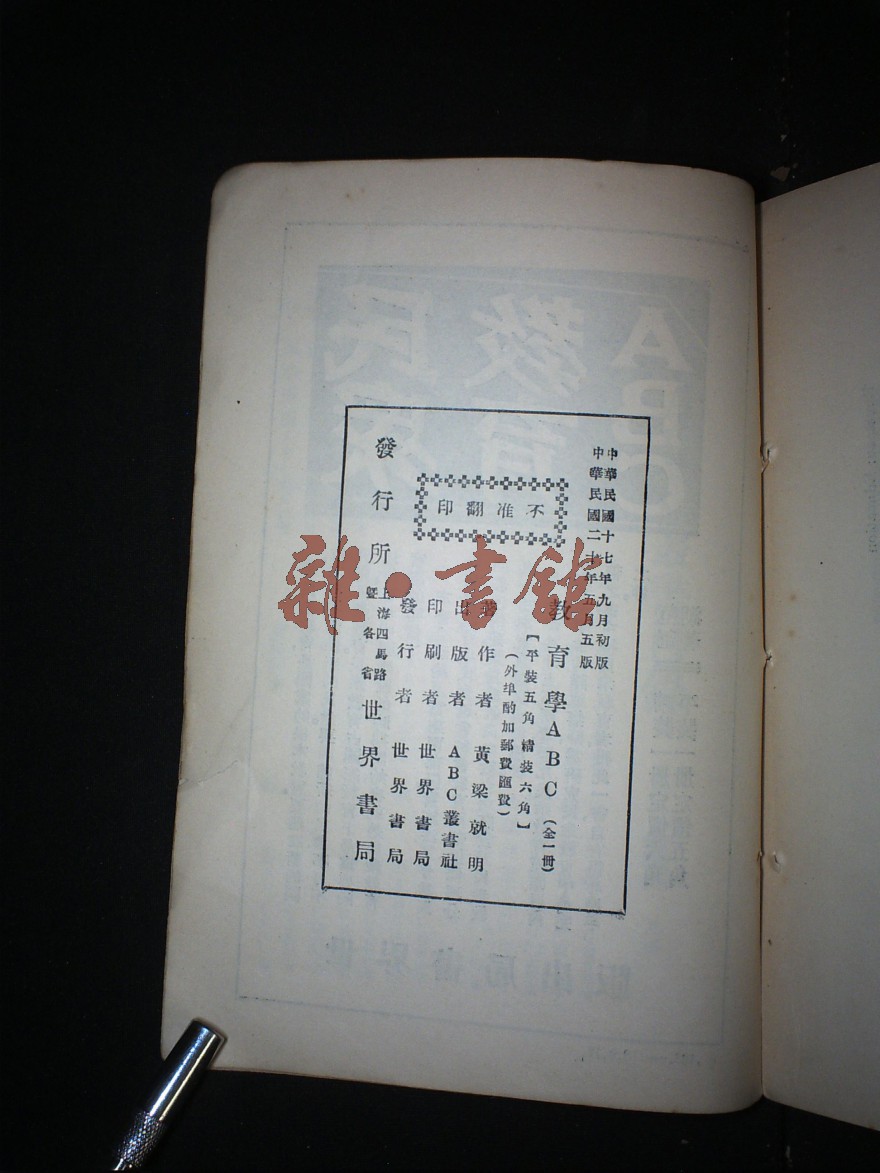 中華民國十七年九月初版
中華民國二十年五月五版
不准翻印
教育學ABC（全一冊）
【平裝五角 精裝六角】
（外埠酌加郵費匯費）
著作者 黃梁就明
出版者 ABC叢書社
印刷者 世界書局
發行者 世界書局
發行所 上海四馬路 暨各省 世界書局
雜·書館